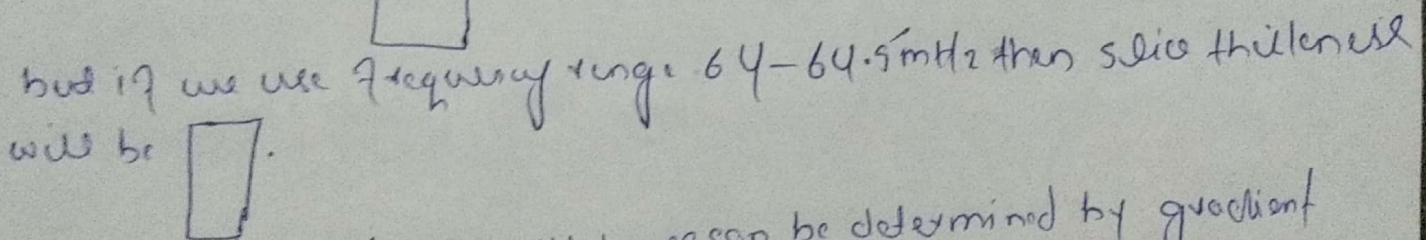 but if we use frequency range 64-64.5mHz then slice thickness
will be .
can be determined by gradient